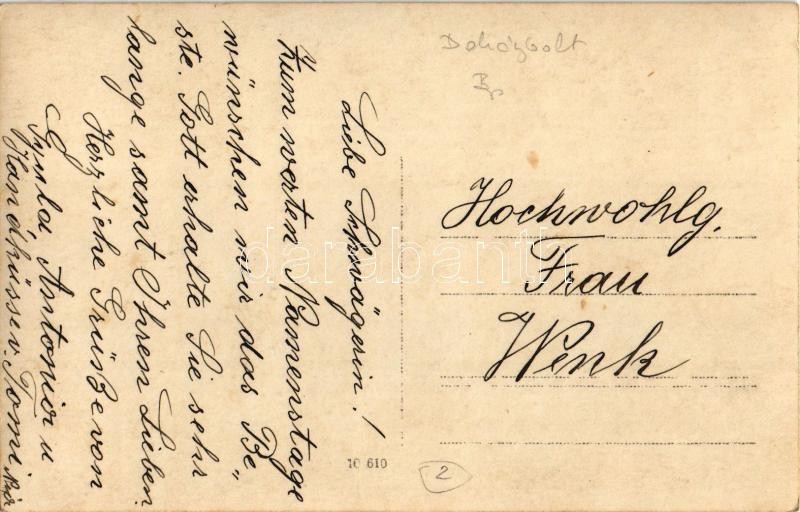 Liebe Schwägerin!
Zum werten Namenstage
wünschen wir das Be„
ste. Gott erhalte Sie sehr
lange samt Ihren Lieben.
Herzliche Grüße von
Gyula, Antonia u
Handküsse v. Tomi
Dohózbolt
Bp
Hochwohlg.
Frau
Wenk
10 610
2
darabanth